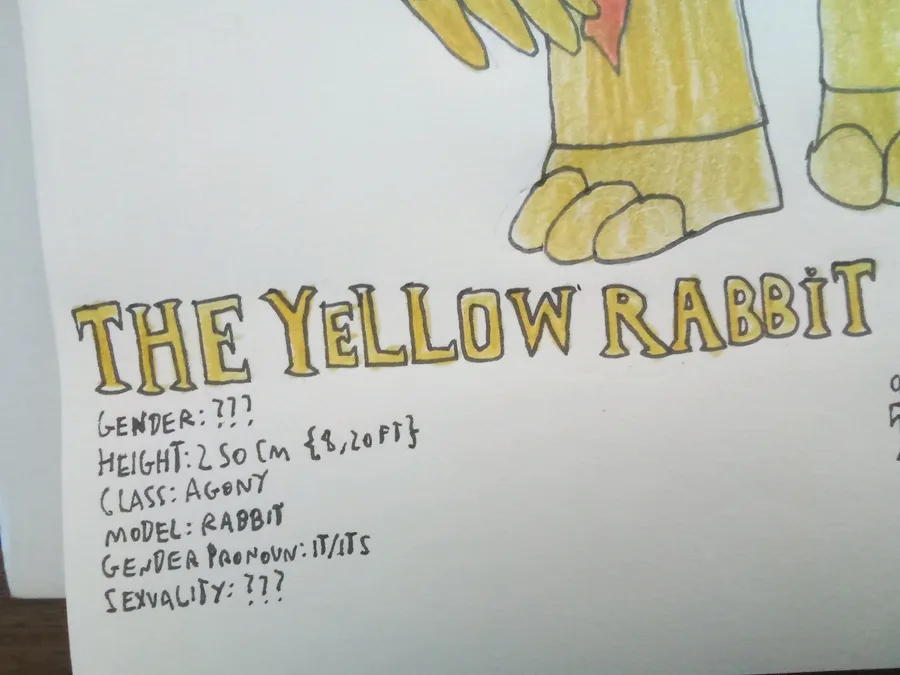 THE YELLOW RABBiT
GENDER: ???
HEIGHT: 250 CM {8,20FT}
CLASS: AGONY
MODEL: RABBIT
GENDER PRONOUN: IT/ITS
SEXUALITY: ???